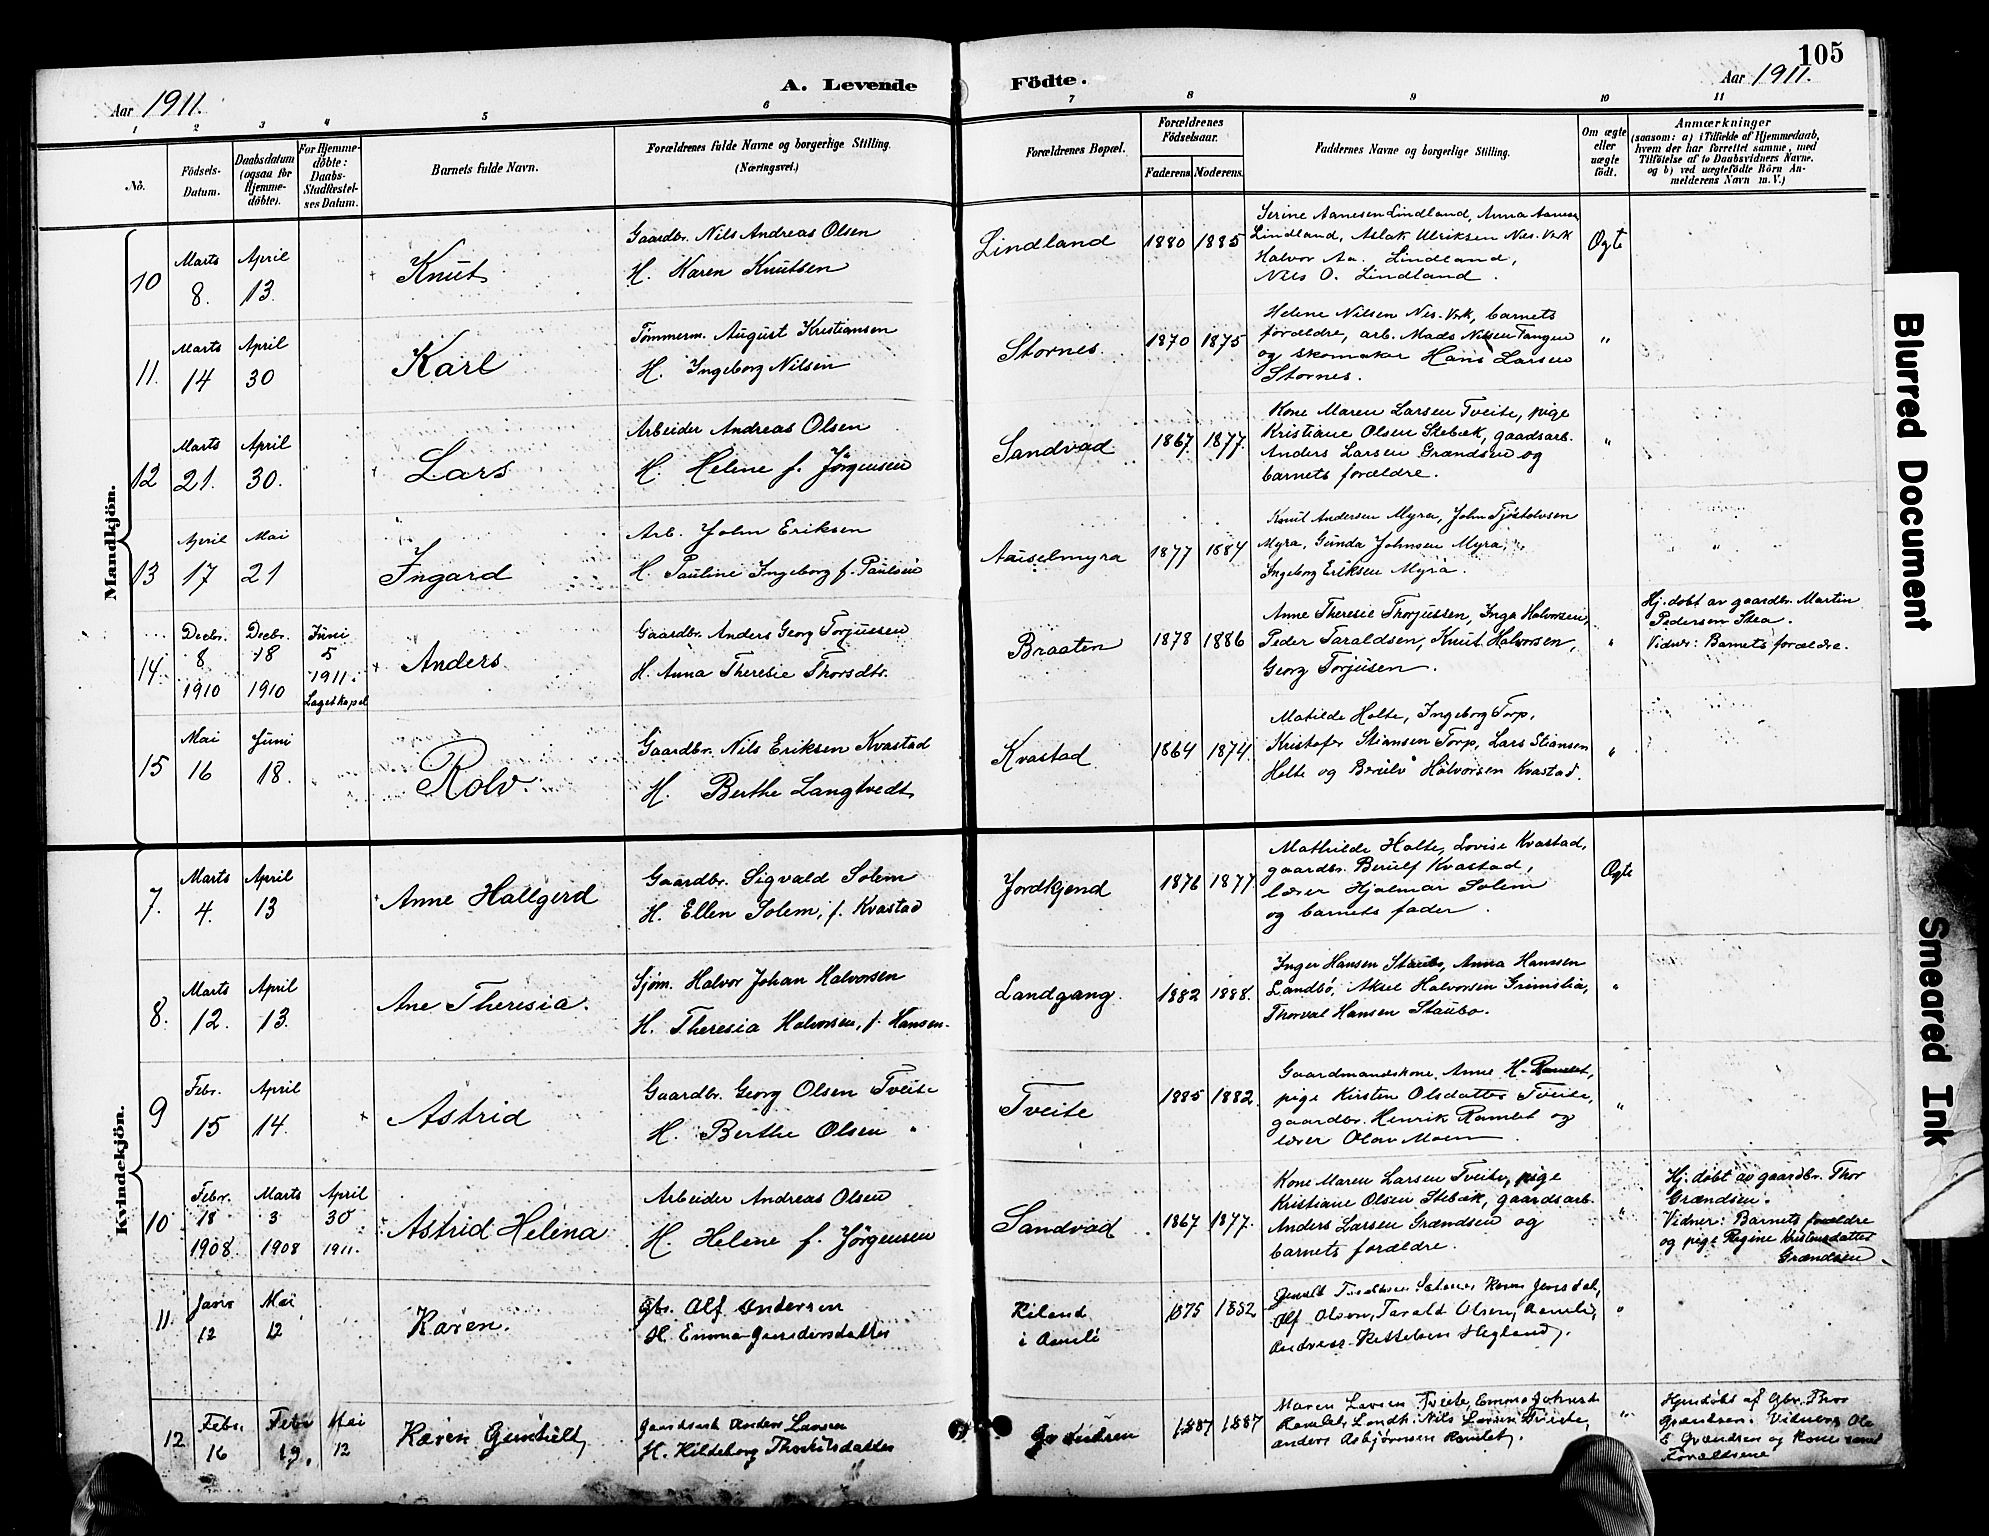 105
Aar 1911.
A. Levende Födte.
Aar 1911.
1 2 3 4 5 6 7 8 9 10 11
No.
Födsels-Datum.
Daabsdatum (ogsaa för Hjemme-döbte).
For Hjemme-döbte: Daabs-Stadfæstel-ses Datum.
Barnets fulde Navn.
Forældrenes fulde Navne og borgerlige Stilling.
(Næringsvei.)
Forældrenes Bopæl.
Forældrenes Födselsaar.
Faderens. Moderens.
Faddernes Navne og borgerlige Stilling.
Om ægte eller uægte födt.
Anmærkninger
(saasom: a) i Tilfælde af Hjemmedaab,
hvem der har forrettet samme, med
Tilföielse af to Daabsvidners Navne.
og b) ved uægtefödte Börn An-
melderens Navn m. V.)
Mandkjön.
10 Marts 8. April 13. Knut
Gaardbr. Nils Andreas Olsen
H. Karen Knutsen
Lindland 1880 1885
Serine Aanesen Lindland, Anna Aanesen
Lindland, Aslak Ulriksen Nes. Verk
Halvor Aa. Lindland,
Nils O. Lindland.
Ogte
11. Marts 14 April 30 Karl
Tømmerm. August Kristiansen
H. Ingeborg Nilsen
Stornes. 1870 1875
Helene Nilsen Nes. Verk, barnets
forældre, arb. Mads Nilsen Tangen
og skomaker Hans Larsen
Stornes.
"
12 Marts 21. April 30. Lars
Arbeider Andreas Olsen
H. Helene f. Jørgensen
Sandvad 1867. 1877.
Kone Maren Larsen Tveite, pige
Kristiane Olsen Stebæk, gaadsarb.
Anders Larsen Grændsen og
barnets forældre.
"
13 April 17 Mai 21 Ingard
Arb. John Eriksen
H. Pauline Ingeborg f. Paulsen
Aauselmyra 1877 1884
Knut Andersen Myra, John Tjøstolvsen
Myra, Gunda Johnsen Myra,
Ingeborg Eriksen Myra.
"
14. Decbr. 8 1910 Decbr. 18 1910 Juni 5 1911. Lagetkapel Anders
Gaardbr. Anders Georg Torjussen
H. Anna Theresie Thorsdtr.
Braaten 1878 1886
Anne Theresie Thorjussen, Inga Halvorsen,
Peder Taraldsen, Knut Halvorsen,
Georg Torjusen.
"
Hj. døbt av gaardbr. Martin
Pedersen Skea.
Vidner: Barnets forældre.
15 Mai 16 Juni 18. Rolv.
Gaardbr. Nils Eriksen Kvastad
H. Berthe Langtvedt
Kvastad 1864 1874.
Matilde Holte, Ingeborg Torp,
Kristofer Stiansen Torp, Lars Stiansen
Holte og Berulv Halvorsen Kvastad.
"
Kvindekjön.
7. Marts 4. April 13 Anne Hallgerd
Gaardbr. Sigvald Solem
H. Ellen Solem, f. Kvastad
Jordkjend 1876 1877
Mathilde Holte, Lovise Kvastad,
gaardbr. Berulf Kvastad,
lærer Hjalmar Solem
og barnets fader.
Ogte
8. Marts 12. April 13. Ane Theresia.
Sjøm. Halvor Johan Halvorsen
H. Theresia Halvorsen, f. Hansen.
Landgang. 1882 1888.
Inger Hansen Staubo, Anna Hanssen
Landbö, Aksel Halvorsen
Thorval Hansen Staubo.
"
9 Febr. 15 April 14. Astrid
Gaardbr. Georg Olsen Tveite
H. Berthe Olsen "
Tveite 1885 1882.
Gaardmandskone. Anne H. Ramlet,
pige Kirsten Olsdatter Tveite,
gaardbr. Henrik Ramlet og
lærer Olav Moen.
"
10 Febr. 18 1908. Marts 3 1908 April 30 1911. Astrid Helena
Arbeider Andreas Olsen
H. Helene f. Jørgensen
Sandvad 1867 1877.
Kone Maren Larsen Tveite, pige
Kristiane Olsen Stebæk, gaardsarb.
Anders Larsen Grændsen og
barnets forældre.
"
Hj. døbt av gaardbr. Thor
Grændsen.
Vidner: Barnets forældre
og pige Regine Kristensdatter
Grændsen
11. Janr 12 Mai 12 Karen.
Gbr. Alf Andersen
H. Emma Gundersdatter
Kiland
i Aamli
1875 1882
Karen Jensdal,
Alf Olson, Tarald Olsen, Aamli,
Andreas Kittelsen Hegland.
"
12 Febr. 16 Febr 19. Mai 12 Karen Gunhild
Gaardsarb Anders Larsen
H. Hildeborg Thorkilsdatter
1887 1887
Maren Larsen Tveite, Emma
Ramlet, Landh. Nils Larsen Tveite,
Anders Asbjørnsen Ramlet.
"
Hjemdøbt af Gbr. Thor
Grændsen. Vidner: Ole
E Grændsen og Kone samt
Forældrene
Blurred Document
Smeared Ink